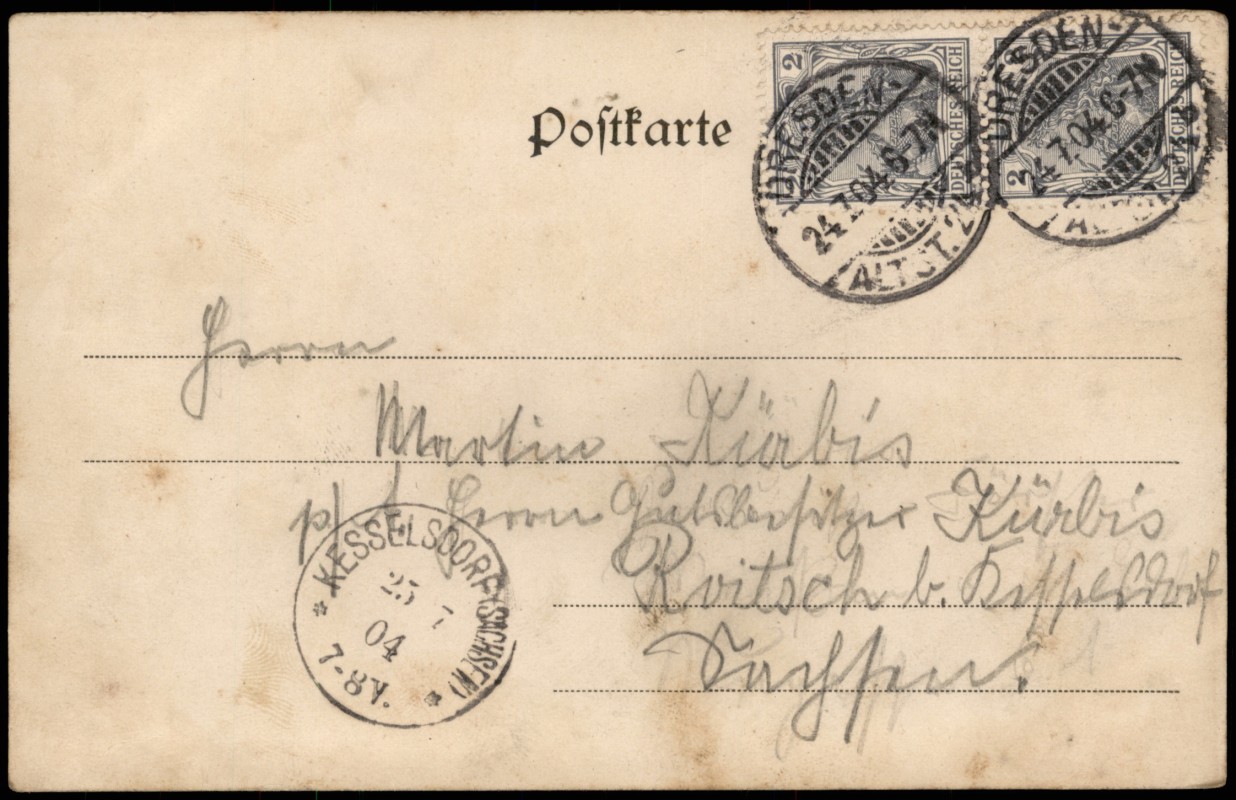 Postkarte
2
DEUTSCHES REICH
2
DEUTSCHES REICH
DRESDEN-
24.7.04.6-7N
ALTST. 24
DRESDEN-
24.7.04.6-7N
ALTST.
Herrn
Martin Kürbis
p/ Herrn Gutsbesitzer Kürbis
Roitsch b. Kesselsdorf
Sachsen.
* KESSELSDORF (SACHSEN) *
25 7
04
7-8V.